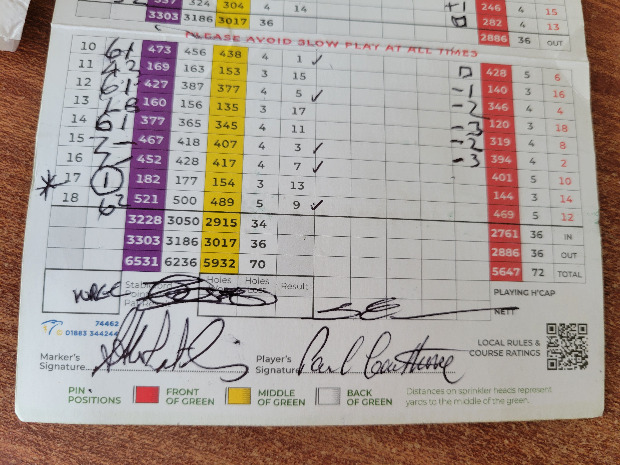 537 324 304 4 14 +1 246 4 15
3303 3186 3017 36 282 4 13
2886 36 OUT
PLEASE AVOID SLOW PLAY AT ALL TIMES
10 61 473 456 438 4 1 ✓ 428 5 6
11 42 169 163 153 3 15 -1 140 3 16
12 61 427 387 377 4 5 ✓ -2 346 4 4
13 160 156 135 3 17 -3 120 3 18
14 61 377 365 345 4 11 -2 319 4 8
15 7- 467 418 407 4 3 ✓ -3 394 4 2
16 7- 452 428 417 4 7 ✓ 401 5 10
17 1 182 177 154 3 13 144 3 14
18 62 521 500 489 5 9 ✓ 469 5 12
3228 3050 2915 34 2761 36 IN
3303 3186 3017 36 2886 36 OUT
6531 6236 5932 70 5647 72 TOTAL
Holes Holes Result PLAYING H'CAP
NETT
74462
01883 344244
LOCAL RULES &
COURSE RATINGS
Marker's
Signature
Player's
Signature Paul
PIN
POSITIONS
FRONT
OF GREEN
MIDDLE
OF GREEN
BACK
OF GREEN
Distances on sprinkler heads represent
yards to the middle of the green.